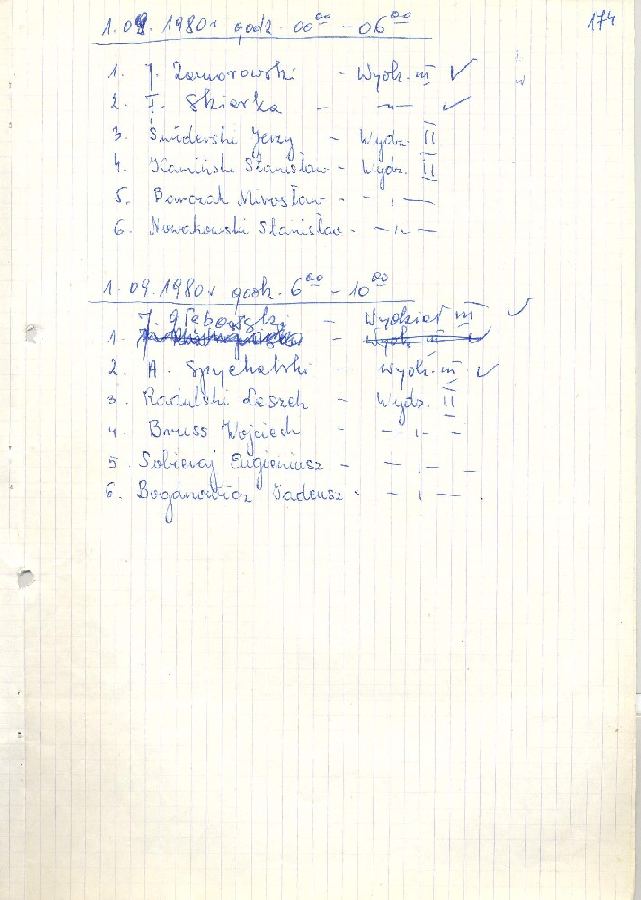 174
1.09.1980r godz. 00⁰⁰ - 06⁰⁰
1. J. Zamorowski - Wydz. III ✓
2. I. Skierka - -„- ✓
3. Świderski Jerzy - Wydz. II
4. Kamiński Stanisław - Wydz. II
5. Borczak Mirosław - - „ -
6. Nowakowski Stanisław - - „ -
1.09.1980r godz. 6⁰⁰ - 10⁰⁰
J. Głębowski - Wydział III ✓
1. - Wydz. III
2. A. Spychalski Wydz. III ✓
3. Raciński Leszek - Wydz. II
4. Bruss Wojciech - - „ -
5. Sobieraj Eugieniusz - - „ -
6. Boganowicz Tadeusz - - „ -